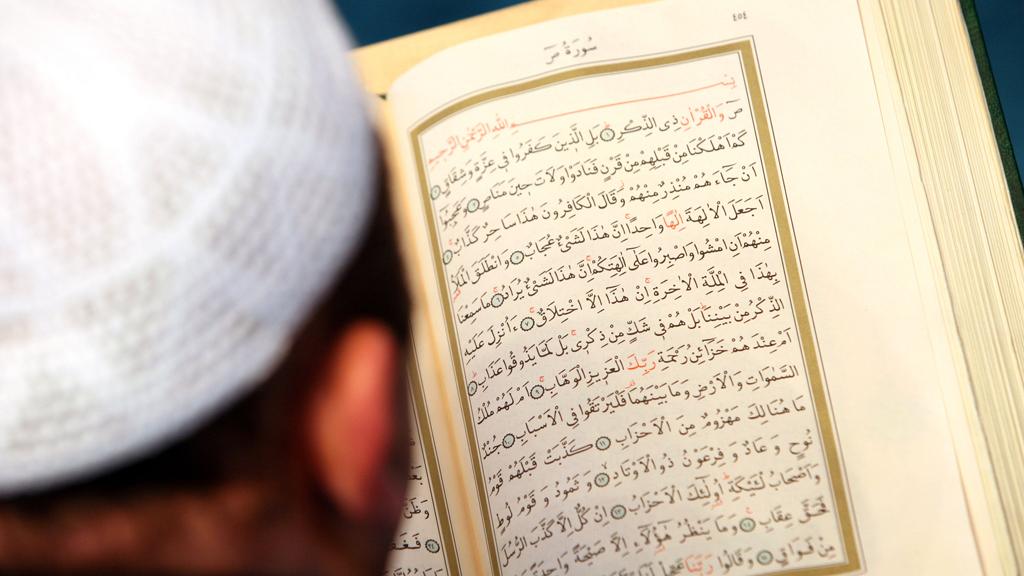 ٤٥٤
سُورَةُ صٓ
بِسْمِ اللّٰهِ الرَّحْمٰنِ الرَّحِيمِ
صٓ وَالْقُرْاٰنِ ذِي الذِّكْرِ ١ بَلِ الَّذِينَ كَفَرُوا فِي عِزَّةٍ وَشِقَاقٍ ٢
كَمْ اَهْلَكْنَا مِنْ قَبْلِهِمْ مِنْ قَرْنٍ فَنَادَوْا وَلَاتَ حِينَ مَنَاصٍ ٣ وَعَجِبُوا
اَنْ جَاءَهُمْ مُنْذِرٌ مِنْهُمْ وَقَالَ الْكَافِرُونَ هٰذَا سَاحِرٌ كَذَّابٌ ٤
اَجَعَلَ الْاٰلِهَةَ اِلٰهًا وَاحِدًا اِنَّ هٰذَا لَشَيْءٌ عُجَابٌ ٥ وَانْطَلَقَ الْمَلَاُ
مِنْهُمْ اَنِ امْشُوا وَاصْبِرُوا عَلٰٓى اٰلِهَتِكُمْ اِنَّ هٰذَا لَشَيْءٌ يُرَادُ ٦ مَا سَمِعْنَا
بِهٰذَا فِي الْمِلَّةِ الْاٰخِرَةِ اِنْ هٰذَا اِلَّا اخْتِلَاقٌ ٧ ءَاُنْزِلَ عَلَيْهِ
الذِّكْرُ مِنْ بَيْنِنَا بَلْ هُمْ فِي شَكٍّ مِنْ ذِكْرِى بَلْ لَمَّا يَذُوقُوا عَذَابِ ٨
اَمْ عِنْدَهُمْ خَزَائِنُ رَحْمَةِ رَبِّكَ الْعَزِيزِ الْوَهَّابِ ٩ اَمْ لَهُمْ مُلْكُ
السَّمٰوَاتِ وَالْاَرْضِ وَمَا بَيْنَهُمَا فَلْيَرْتَقُوا فِي الْاَسْبَابِ ١٠ جُنْدٌ
مَا هُنَالِكَ مَهْزُومٌ مِنَ الْاَحْزَابِ ١١ كَذَّبَتْ قَبْلَهُمْ قَوْمُ
نُوحٍ وَعَادٌ وَفِرْعَوْنُ ذُو الْاَوْتَادِ ١٢ وَثَمُودُ وَقَوْمُ لُوطٍ
وَاَصْحَابُ لْـَٔيْكَةِ اُولٰٓئِكَ الْاَحْزَابُ ١٣ اِنْ كُلٌّ اِلَّا كَذَّبَ الرُّسُلَ
فَحَقَّ عِقَابِ ١٤ وَمَا يَنْظُرُ هٰٓؤُلَاءِ اِلَّا صَيْحَةً وَاحِدَةً مَا لَهَا
مِنْ فَوَاقٍ ١٥ وَقَالُوا رَبَّنَا عَجِّلْ لَنَا